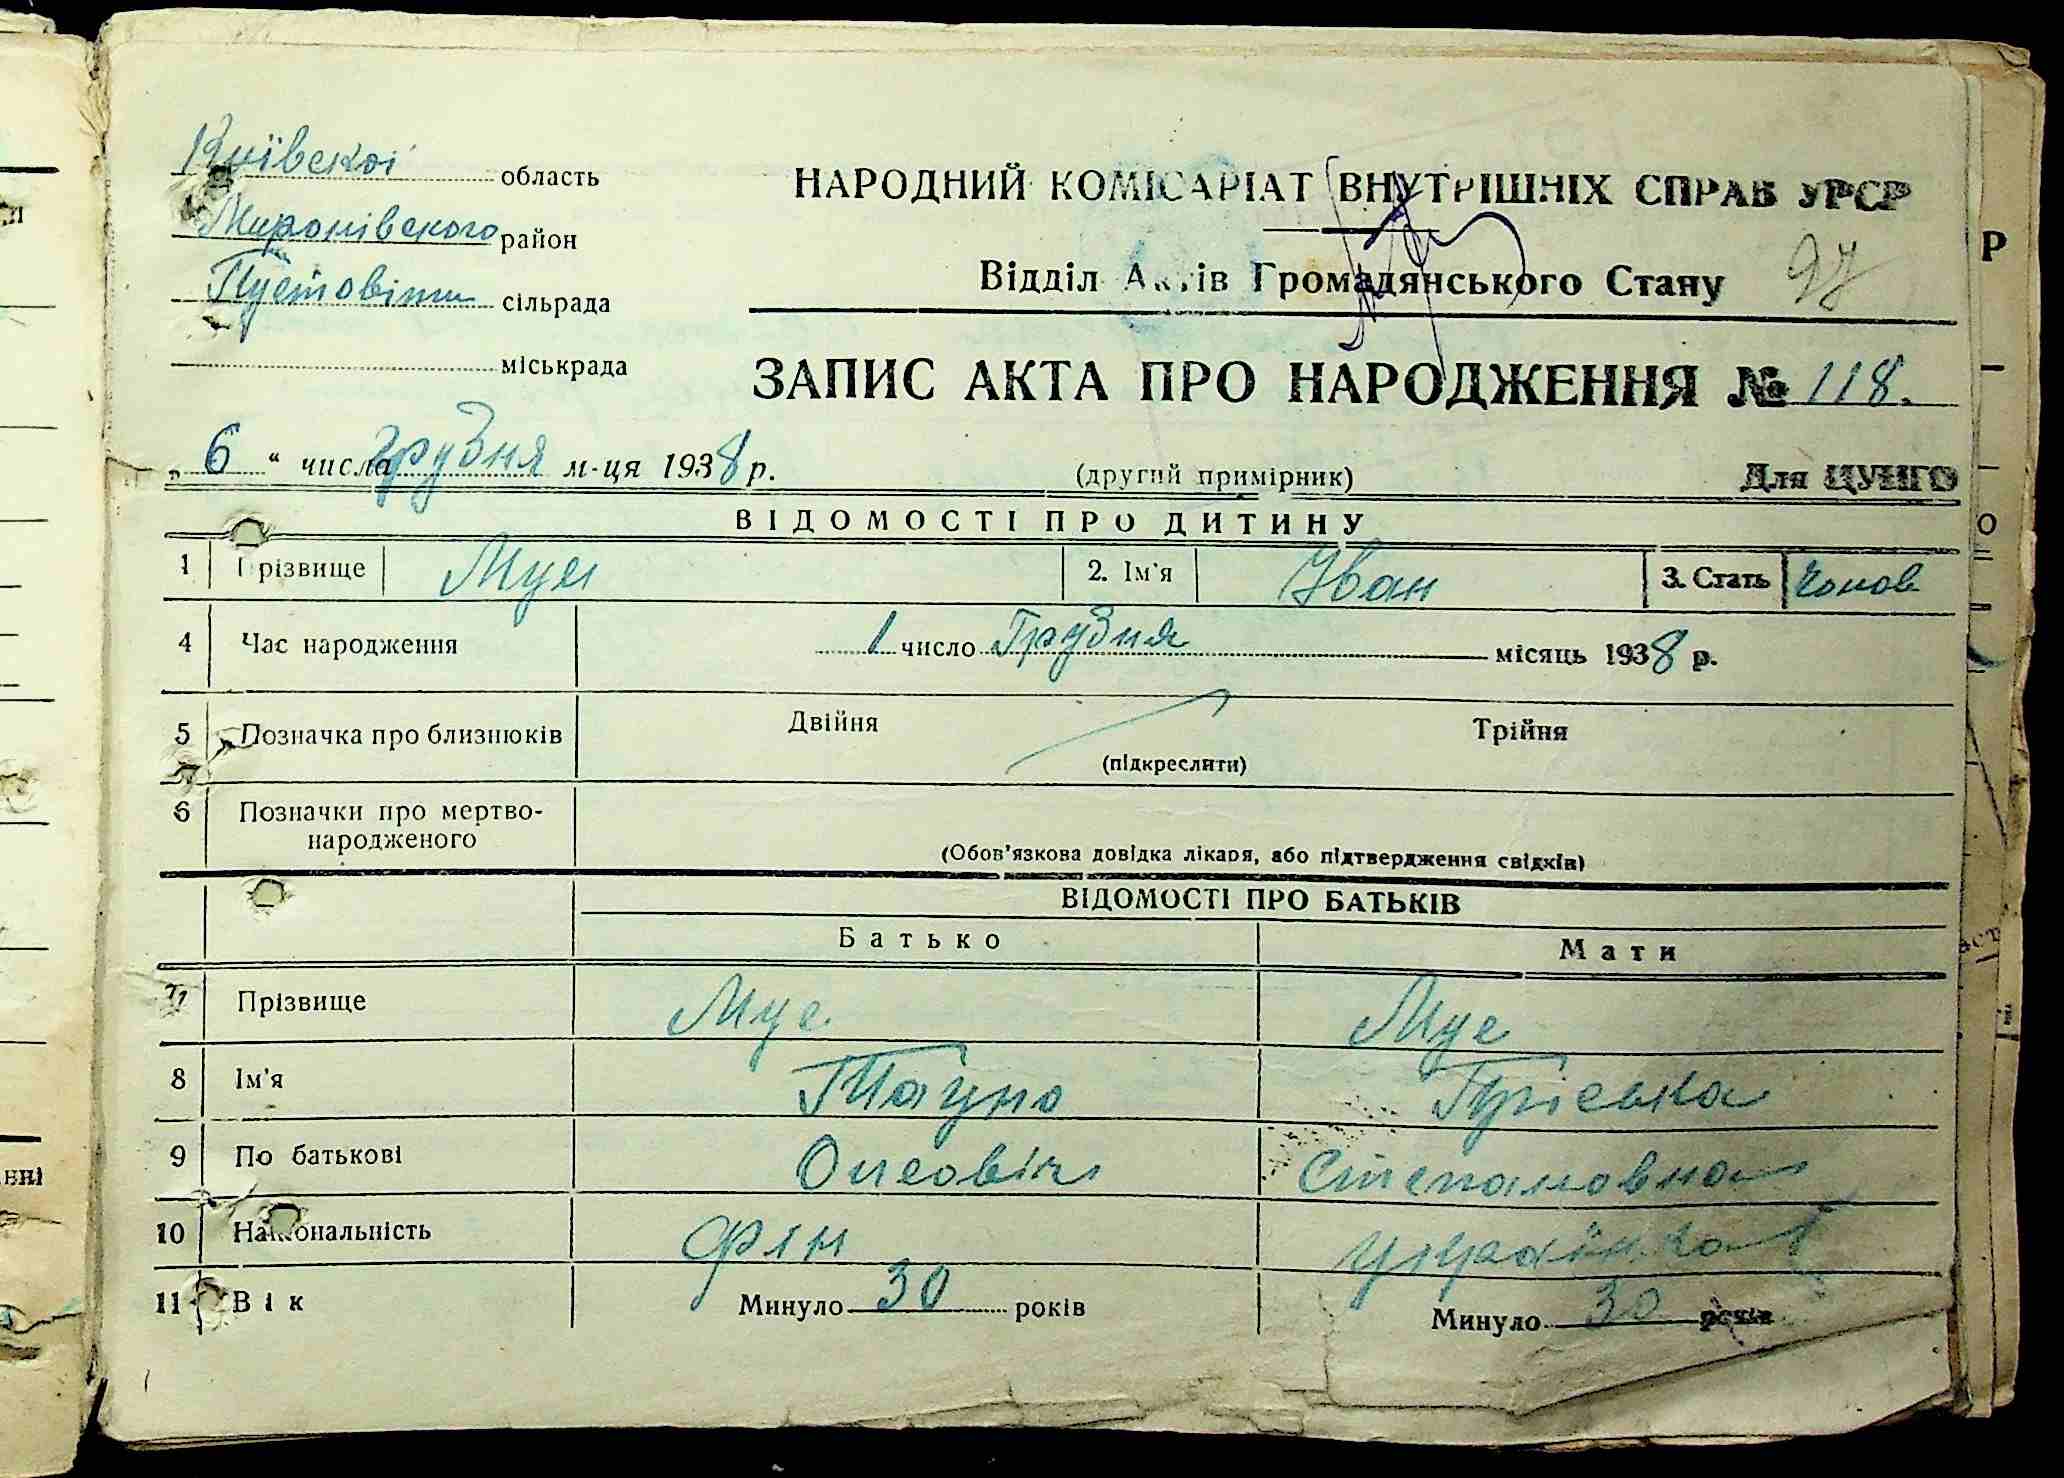 Київскої область
Миронівского район
Пустовіти сільрада
міськрада
НАРОДНИЙ КОМІСАРІАТ ВНУТРІШНІХ СПРАВ УРСР
Відділ Актів Громадянського Стану 97
ЗАПИС АКТА ПРО НАРОДЖЕННЯ № 118.
„ 6 “ числа грудня м-ця 1938 р. (другий примірник) Для ЦУНГО
ВІДОМОСТІ ПРО ДИТИНУ
1 Прізвище 2. Ім'я Іван 3. Стать Чолов
4 Час народження 1 число Грудня місяць 1938 р.
5 Позначка про близнюків Двійня Трійня
(підкреслити)
6 Позначки про мертво-
народженого
(Обов'язкова довідка лікаря, або підтвердження свідків)
ВІДОМОСТІ ПРО БАТЬКІВ
Батько Мати
7 Прізвище Мус Мус
8 Ім'я Тауно
9 По батькові Степановна
10 Національність Фін Українка
11 Вік Минуло 30 років Минуло 30 років